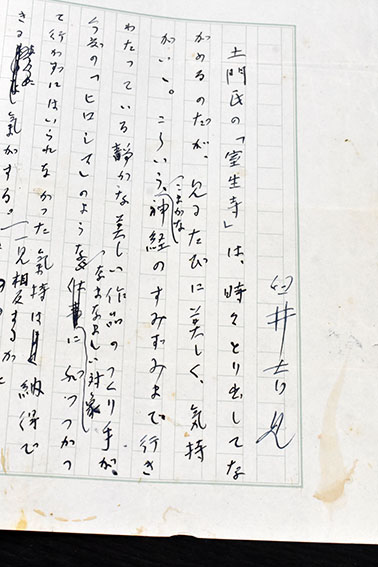 臼井吉見
土門氏の「室生寺」は、時々とり出してな
がめるのだが、見るたびに美しく、気持
がいい。こういう、こまかな神経のすみずみまで行き
わたっている静かな美しい作品のつくり手が、
今度の「ヒロシマ」のようななまなましい対象にぶつかっ
て行かずにはいられなかった気持は納得で
きる気がする。一見相反するかに